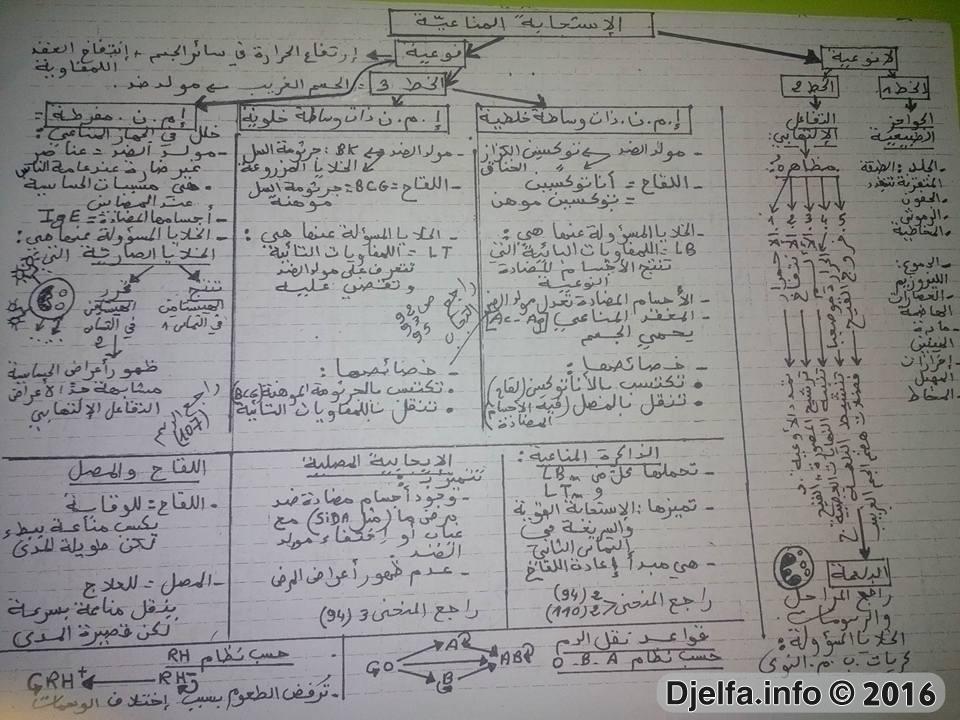 الإستجابة المناعيّة
لا نوعية
نوعية
إرتفاع الحرارة في سائر الجسم + إنتفاخ العقد
اللمفاوية
الخط 1
الخط 2
الخط 3
الجسم الغريب ← مولد ضد.
الحواجز
الطبيعية
الجلد: الطبقة
المتقرنة تتجدد
الدموع:
الليزوزيم
العصارات
الهاضمة
إفرازات
المهبل
المخاط
التفاعل
الإلتهابي:
مظاهره:
1. الاحمرار
2. الانتفاخ
3. الألم
5. خروج القيح
تمدد الأوعية
البلعمة
راجع المراحل
والرسومات
الخلايا المسؤولة:
كريات. ب. م. النوى
إ. م. ن. ذات وساطة خلطية
- مولد الضد ← توكسين الكزاز
- اللقاح = أناتوكسين
= توكسين موهن
- الخلايا المسؤولة عنها هي:
LB = اللمفاويات البائية التي
تنتج الأجسام المضادة
النوعية
- الأجسام المضادة تعدل مولد الضد
- المعقد المناعي (Ac-Ag)
يحمي الجسم
- خصائصها:
• تكتسب بالأناتوكسين (لقاح)
• تنقل بالمصل (فيه الأجسام
المضادة)
إ. م. ن ذات وساطة خلوية
- مولد الضد ← BK: جرثومة السل
← الخلايا المزروعة
- اللقاح = BCG: جرثومة السل
موهنة
- الخلايا المسؤولة عنها هي:
LT = اللمفاويات التائية
تتعرف على مولد الضد
و تقتضي عليه
راجع ص 92
93
95
- خصائصها:
• تكتسب بالجرثومة الموهنة (BCG)
• تنقل باللمفاويات التائية
إ. م. ن. مفرطة =
خلل في الجهاز المناعي:
- مولد الضد = عناصر
غير ضارة عند عامة الناس
- هي مسببات الحساسية
عند البعض
- أجسامها المضادة = IgE
- الخلايا المسؤولة عنها هي:
الخلايا الصارية التي:
تنتج
الهيستامين
في التماس 1
تحرر
الهيستامين
في التماس
2
ظهور أعراض الحساسية
مشابهة جدًا لأعراض
التفاعل الإلتهابي
راجع الرسم
(107)
الذاكرة المناعية:
- تحملها كل من LBm
و LTm
- تميزها: الاستجابة القوية
والسريعة في
التماس الثاني
- هي مبدأ إعادة اللقاح
راجع المنحنى 2 (94)
2 (110)
الإيجابية المصلية
تتميز بـ:
- وجود أجسام مضادة ضد
مرض ما (مثل SiDA) مع
غياب أو إختفاء مولد
الضد.
- عدم ظهور أعراض المرض
راجع المنحنى 3 (94)
اللقاح والمصل
- اللقاح = للوقاية
يكسب مناعة ببطء
لكن طويلة المدى
- المصل = للعلاج
ينقل مناعة بسرعة
لكن قصيرة المدى
قواعد نقل الدم
حسب نظام O-B-A
O
A
B
AB
حسب نظام RH
RH-
RH+
- ترفض الطعوم بسبب إختلاف الومسات
Djelfa.info © 2016